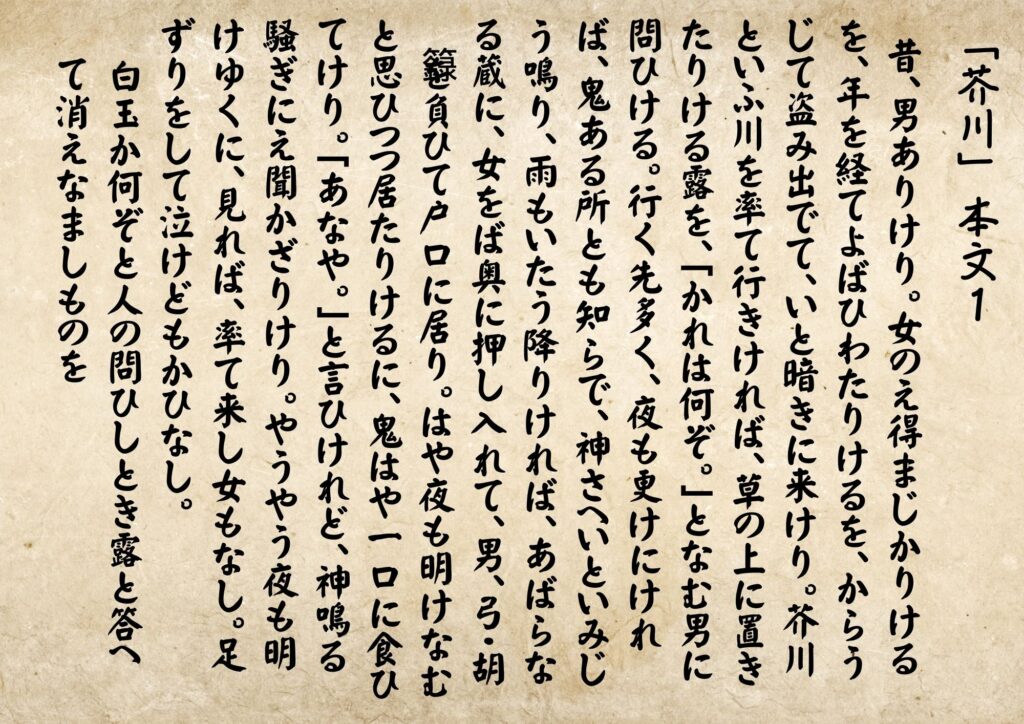 「芥川」本文1
昔、男ありけり。女のえ得まじかりける
を、年を経てよばひわたりけるを、からう
じて盗み出でて、いと暗きに来けり。芥川
といふ川を率て行きければ、草の上に置き
たりける露を、「かれは何ぞ。」となむ男に
問ひける。行く先多く、夜も更けにけれ
ば、鬼ある所とも知らで、神さへいといみじ
う鳴り、雨もいたう降りければ、あばらな
る蔵に、女をば奥に押し入れて、男、弓・胡
籙を負ひて戸口に居り。はや夜も明けなむ
と思ひつつ居たりけるに、鬼はや一口に食ひ
てけり。「あなや。」と言ひけれど、神鳴る
騒ぎにえ聞かざりけり。やうやう夜も明
けゆくに、見れば、率て来し女もなし。足
ずりをして泣けどもかひなし。
白玉か何ぞと人の問ひしとき露と答へ
て消えなましものを